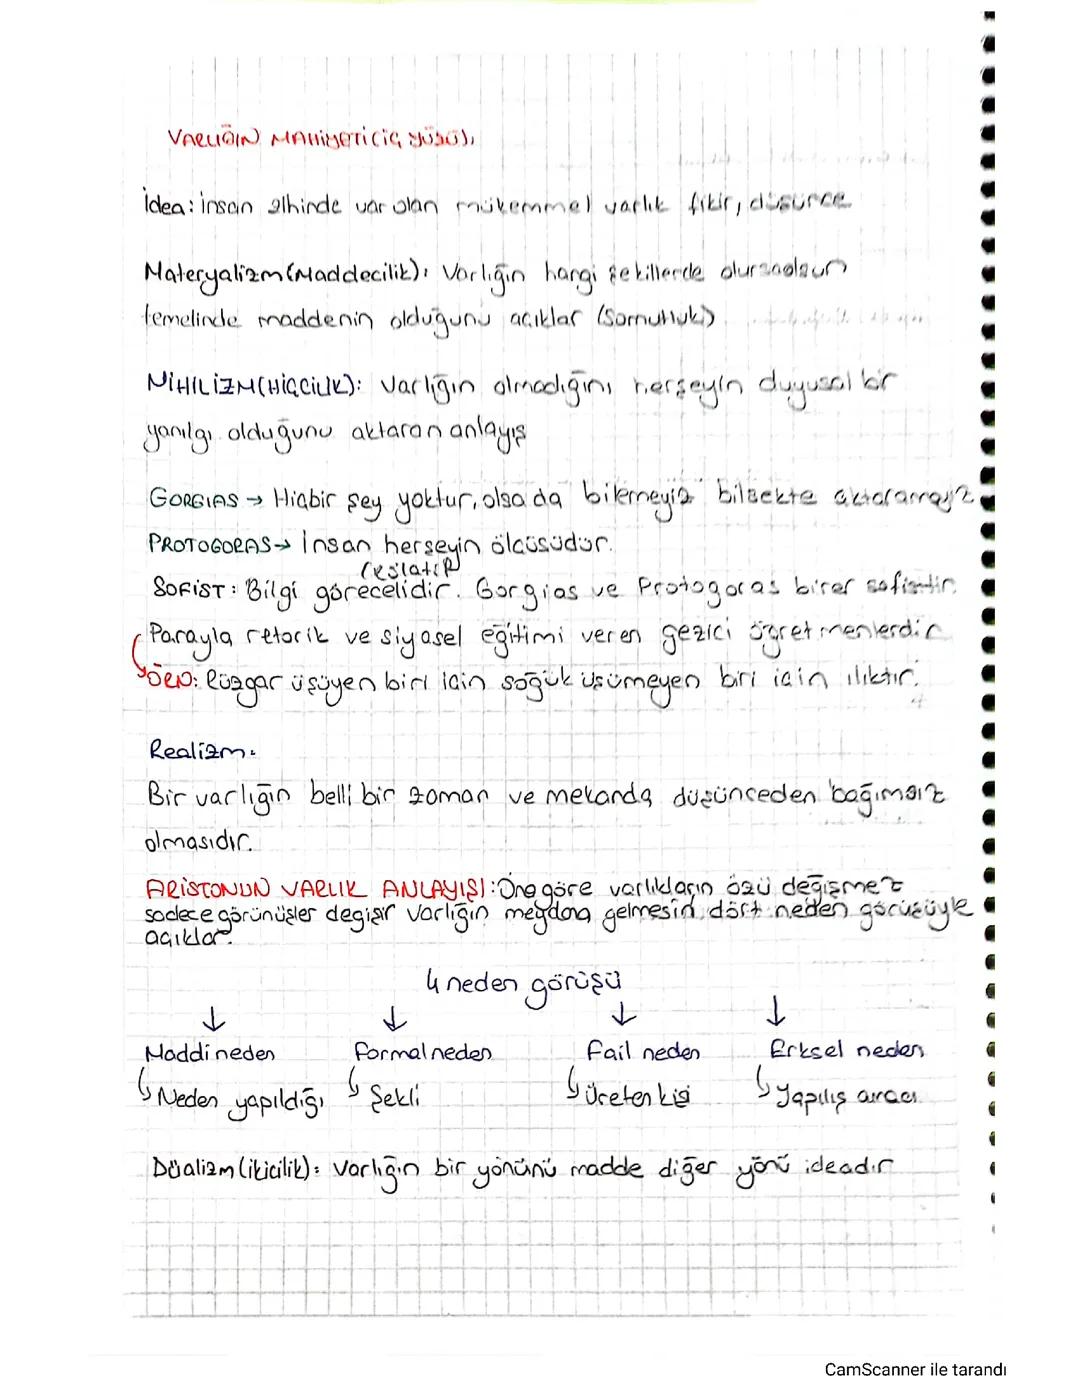 VARLIĞIN MAHİYETİ (İÇ YÜZÜ):
İdea: insan zihinde var olan mükemmel varlık fikir, düşünce
Materyalizm (Maddecilik): Varlığın hangi şekillerde olursaolsun
temelinde maddenin olduğunu açıklar (Somutluk)
NİHİLİZM (HİÇCİLİK): Varlığın olmadığını herşeyin duyusal bir
yanılgı olduğunu aktaran anlayış
GORGIAS → Hiçbir şey yoktur, olsa da bilemeyiz bilsekte aktaramayız
PROTOGORAS → İnsan herşeyin ölçüsüdür.
(rölatif)
SOFİST: Bilgi görecelidir. Gorgias ve Protogoras birer sofisttir.
Parayla retorik ve siyasel eğitimi veren gezici öğretmenlerdir
ÖRN: Rüzgar üşüyen biri için soğuk üşümeyen biri için ılıktır.
Realizm:
Bir varlığın belli bir zaman ve mekanda düşünceden bağımsız
olmasıdır.
ARİSTONUN VARLIK ANLAYIŞI: Ona göre varlıkların özü değişmez
sadece görünüşler degişir varlığın meydana gelmesin dört neden görüşüyle
açıklar.
4 neden görüşü
↓ ↓ ↓ ↓
Maddi neden Formal neden Fail neden Erksel neden
Neden yapıldığı Şekli Üreten kişi Yapılış aracı
Düalizm (ikicilik): Varlığın bir yönünü madde diğer yönü ideadır
CamScanner ile tarandı